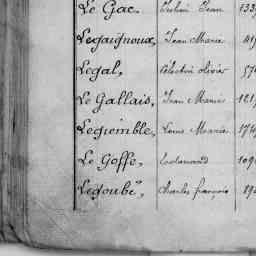 Le Gac. Jean 133
Legaignoux, Jean Marie
Legal, Célestin Olivier 57
Le Gallais, Jean Marie 121
Legremble, Louis Marie 174
Le Goffe, 109
Legoubé, Charles françois 89